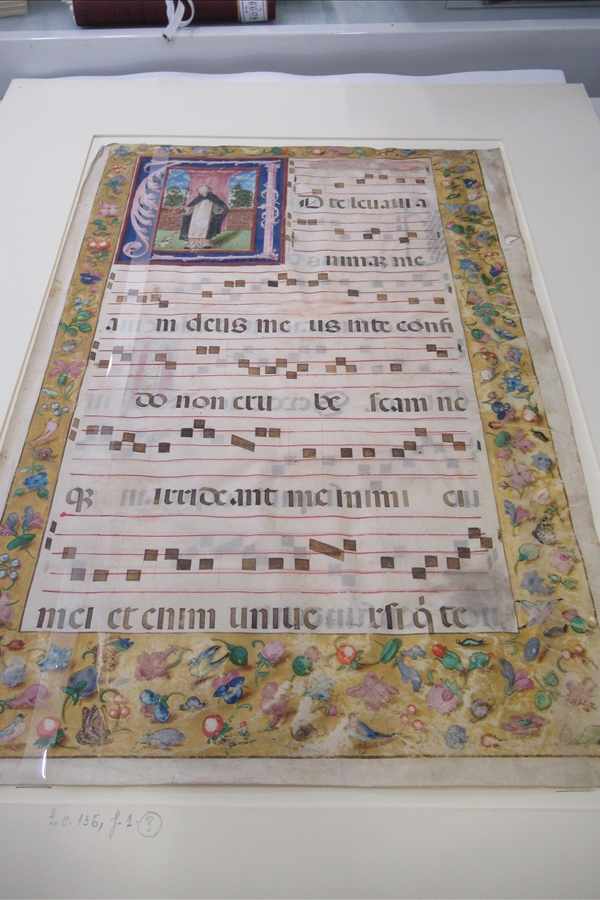 AD te levavi a
nimaz me
a m deus me us in te confi
do non eru be scam ne
qz irrideant me inimi ci
mei et enim univer rsi q̃ te
L.C. 136, f. 1 (?)